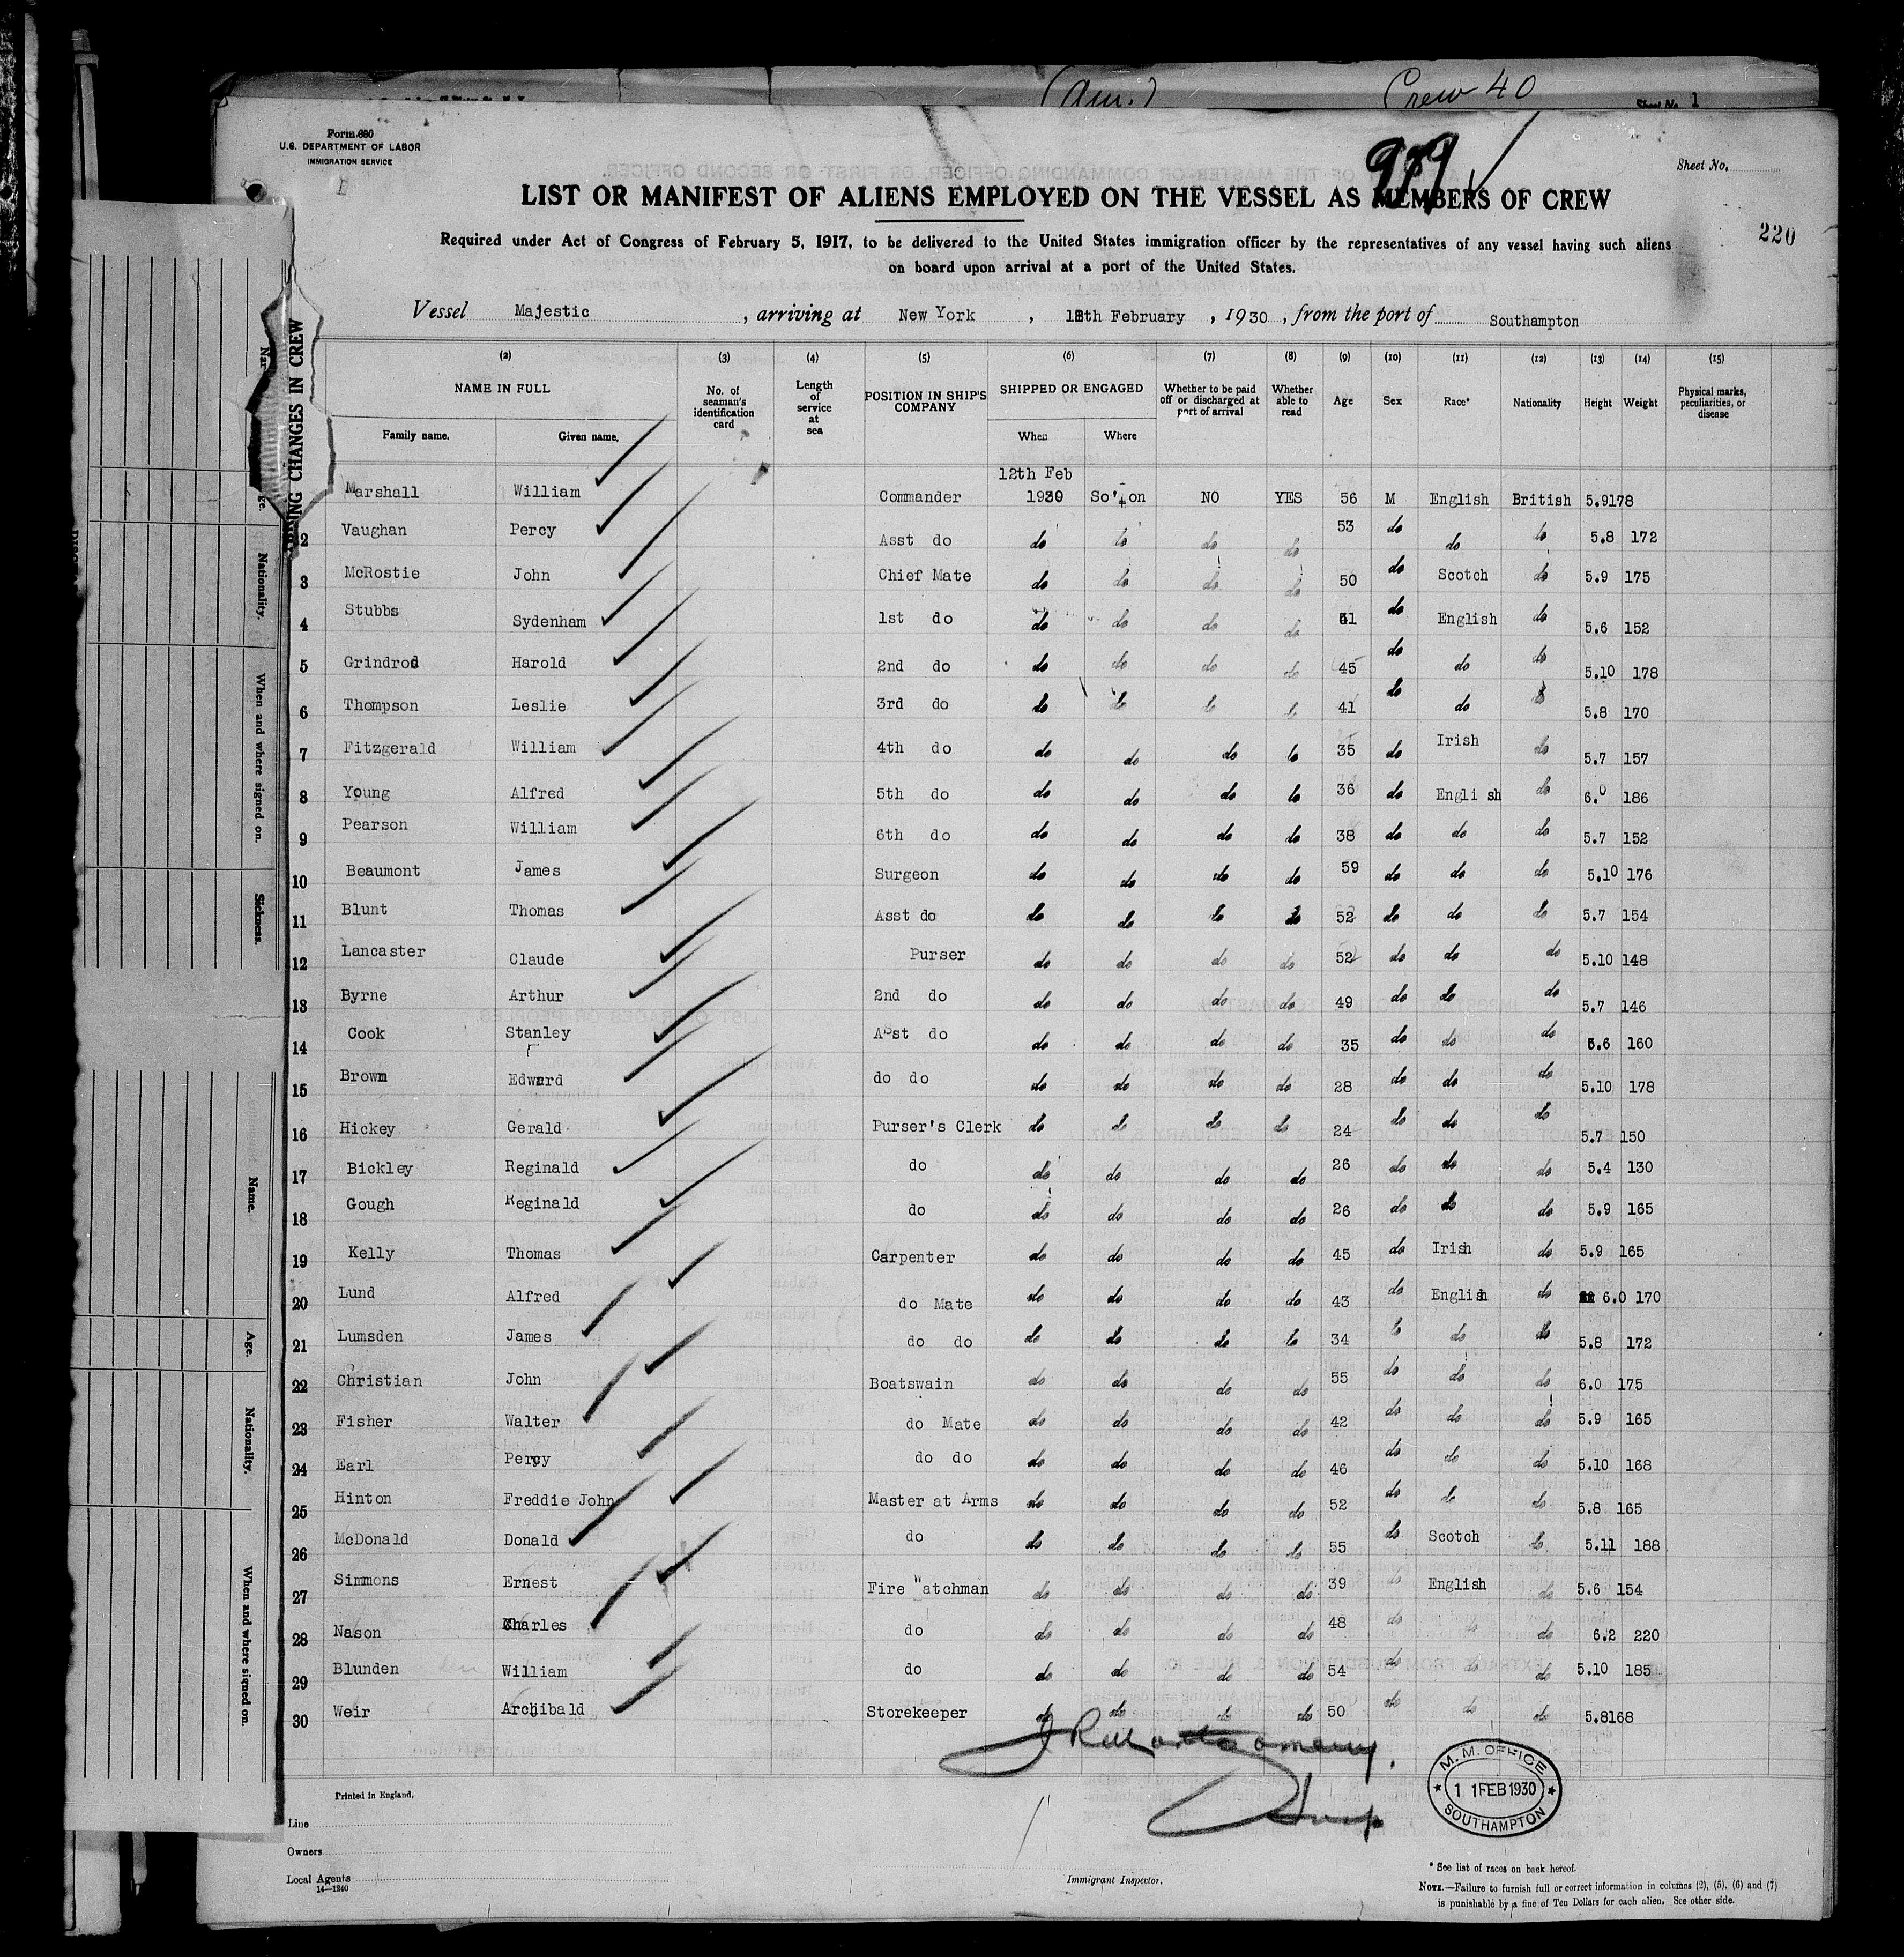 (Am.) Crew 40
Sheet No. 1
Form 680
U.S. DEPARTMENT OF LABOR
IMMIGRATION SERVICE
Sheet No.
LIST OR MANIFEST OF ALIENS EMPLOYED ON THE VESSEL AS MEMBERS OF CREW
220
Required under Act of Congress of February 5, 1917, to be delivered to the United States immigration officer by the representatives of any vessel having such aliens
on board upon arrival at a port of the United States.
Vessel Majestic, arriving at New York, 18th February, 1930, from the port of Southampton
(2) (3) (4) (5) (6) (7) (8) (9) (10) (11) (12) (13) (14) (15)
NAME IN FULL
Family name. Given name.
No. of seaman's identification card
Length of service at sea
POSITION IN SHIP'S COMPANY
SHIPPED OR ENGAGED
When Where
Whether to be paid off or discharged at port of arrival
Whether able to read
Age
Sex
Race*
Nationality
Height
Weight
Physical marks, peculiarities, or disease
12th Feb
Marshall William Commander 1930 So'ton NO YES 56 M English British 5.9 178
2 Vaughan Percy Asst do do do do do 53 do do do 5.8 172
3 McRostie John Chief Mate do do do do 50 do Scotch do 5.9 175
4 Stubbs Sydenham 1st do do do do do 51 do English do 5.6 152
5 Grindrod Harold 2nd do do do do do 45 do do do 5.10 178
6 Thompson Leslie 3rd do do do do do 41 do do do 5.8 170
7 Fitzgerald William 4th do do do do do 35 do Irish do 5.7 157
8 Young Alfred 5th do do do do do 36 do English do 6.0 186
9 Pearson William 6th do do do do do 38 do do do 5.7 152
10 Beaumont James Surgeon do do do do 59 do do do 5.10 176
11 Blunt Thomas Asst do do do do do 52 do do do 5.7 154
12 Lancaster Claude Purser do do do do 52 do do do 5.10 148
13 Byrne Arthur 2nd do do do do do 49 do do do 5.7 146
14 Cook Stanley Asst do do do do do 35 do do do 5.6 160
15 Brown Edward do do do do do do 28 do do do 5.10 178
16 Hickey Gerald Purser's Clerk do do do do 24 do do do 5.7 150
17 Bickley Reginald do do do do do 26 do do do 5.4 130
18 Gough Reginald do do do do do 26 do do do 5.9 165
19 Kelly Thomas Carpenter do do do do 45 do Irish do 5.9 165
20 Lund Alfred do Mate do do do do 43 do English do 6.0 170
21 Lumsden James do do do do do do 34 do do do 5.8 172
22 Christian John Boatswain do do do do 55 do do do 6.0 175
23 Fisher Walter do Mate do do do do 42 do do do 5.9 165
24 Earl Percy do do do do do do 46 do do do 5.10 168
25 Hinton Freddie John Master at Arms do do do do 52 do do do 5.8 165
26 McDonald Donald do do do do do 55 do Scotch do 5.11 188
27 Simmons Ernest Fire "atchman do do do do 39 do English do 5.6 154
28 Nason Charles do do do do do 48 do do do 6.2 220
29 Blunden William do do do do do 54 do do do 5.10 185
30 Weir Archibald Storekeeper do do do do 50 do do do 5.8 168
M. M. OFFICE
11 FEB 1930
SOUTHAMPTON
Printed in England.
Line
Owners
Local Agents
14—1240
Immigrant Inspector.
* See list of races on back hereof.
NOTE.—Failure to furnish full or correct information in columns (2), (5), (6) and (7)
is punishable by a fine of Ten Dollars for each alien. See other side.
CHANGES IN CREW
Nationality.
When and where signed on.
Sickness.
Name.
Age.
Nationality.
When and where signed on.